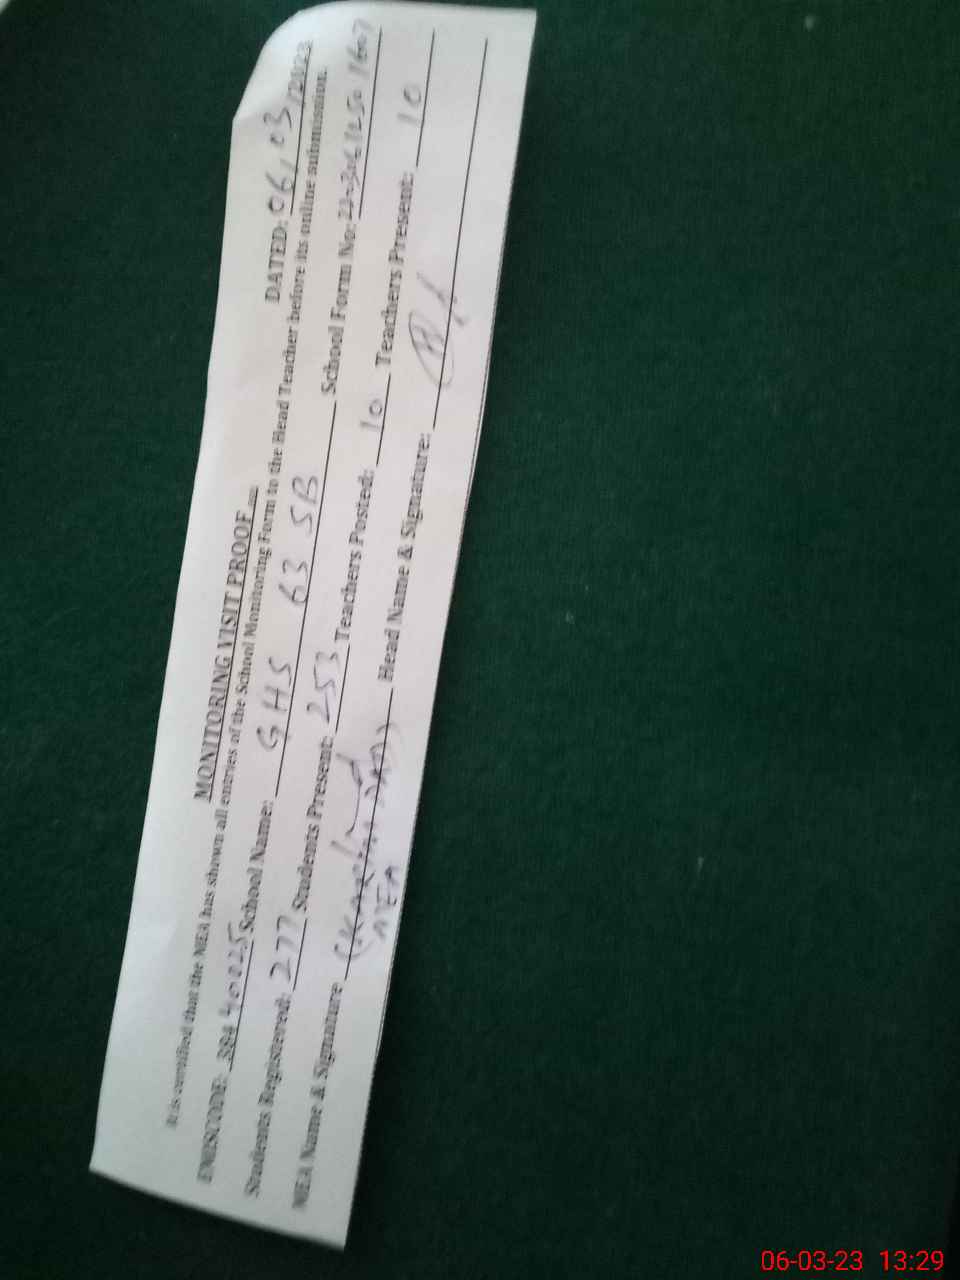 MONITORING VISIT PROOF
DATED: 06/03/2023
It is certified that the MEA has shown all entries of the School Monitoring Form to the Head Teacher before its online submission.
EMISCODE: 38440025 School Name: GHS 63 SB School Form No:
Students Registered: 277 Students Present: 253 Teachers Posted: 10 Teachers Present: 10
MEA Name & Signature Head Name & Signature:
MEA
06-03-23 13:29